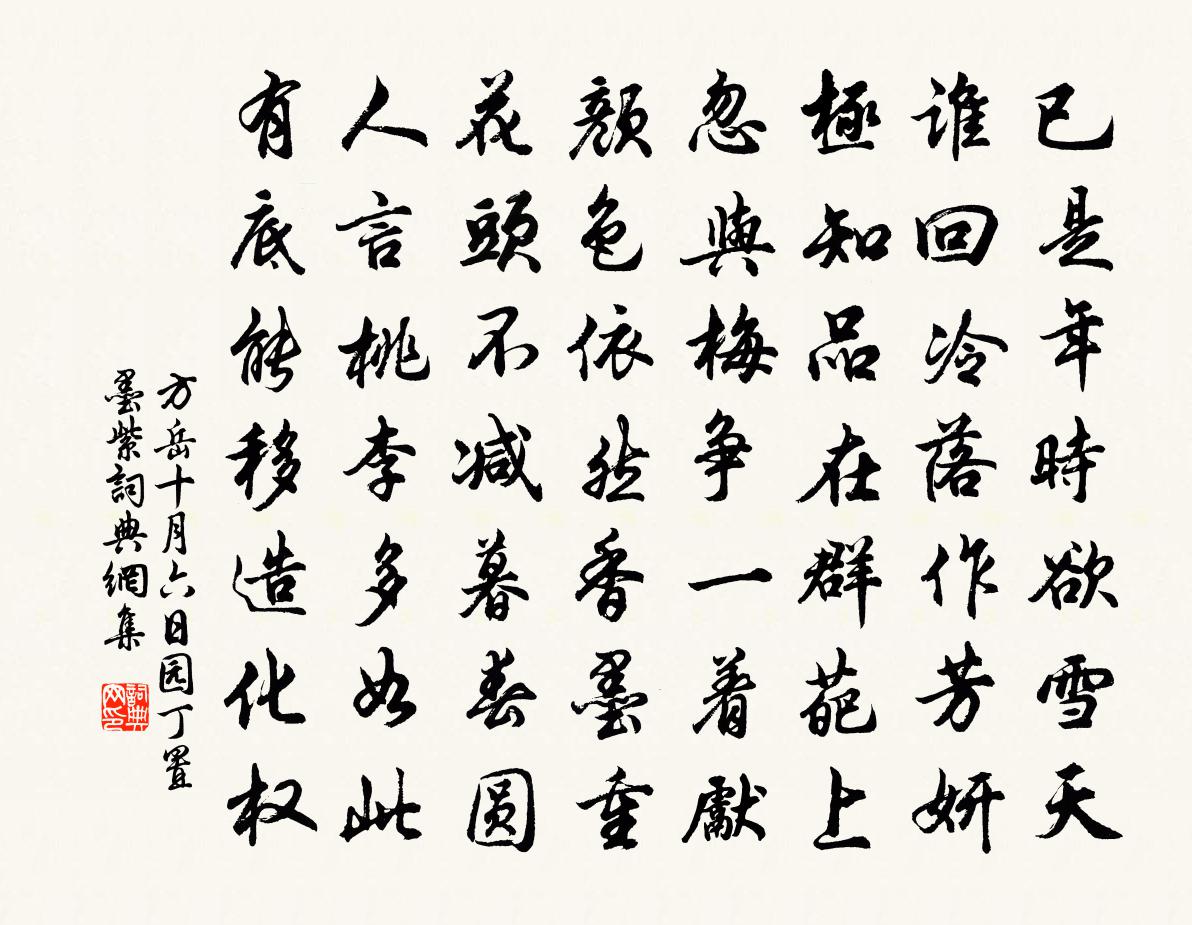 已是年時欲雪天
谁回冷落作芳妍
極知品在群葩上
忽與梅争一着獻
顏色依然香墨重
花頭不减暮春圆
人言桃李多如此
有底能移造化权
方岳十月六日园丁置
墨紫詞典網集
詞典网印